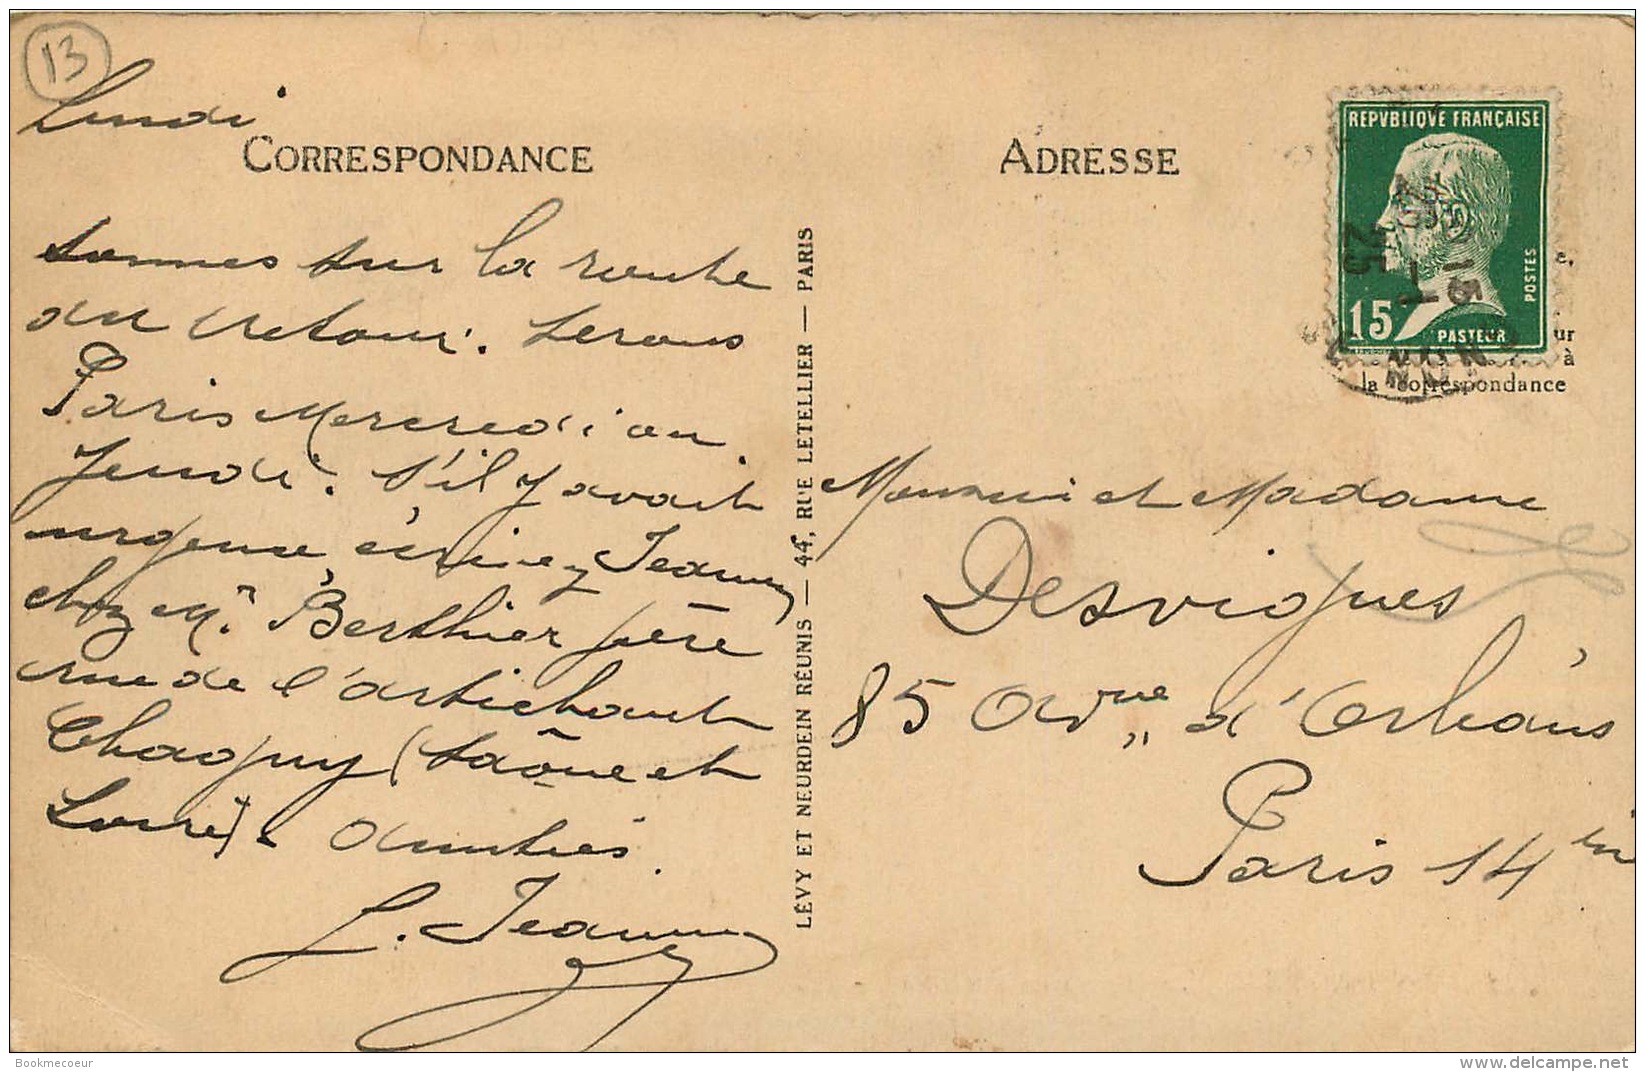 13
Lundi
CORRESPONDANCE
sommes sur la route
du retour. Serons
Paris Mercredi ou
Jeudi. S'il y avait
urgence, écrivez Jeannin
chez Mr. Berthier père
rue de l'artichaut
Chagny (Saône et
Loire). amitiés.
L. Jeannin
LÉVY ET NEURDEIN RÉUNIS — 44, RUE LETELLIER — PARIS
ADRESSE
REPVBLIQVE FRANÇAISE
POSTES
15
PASTEUR
15
25
e,
ur
à
la correspondance
Monsieur et Madame
Desvignes
85 Avnue d'Orléans
Paris 14
Bookmecoeur
www.delcampe.net